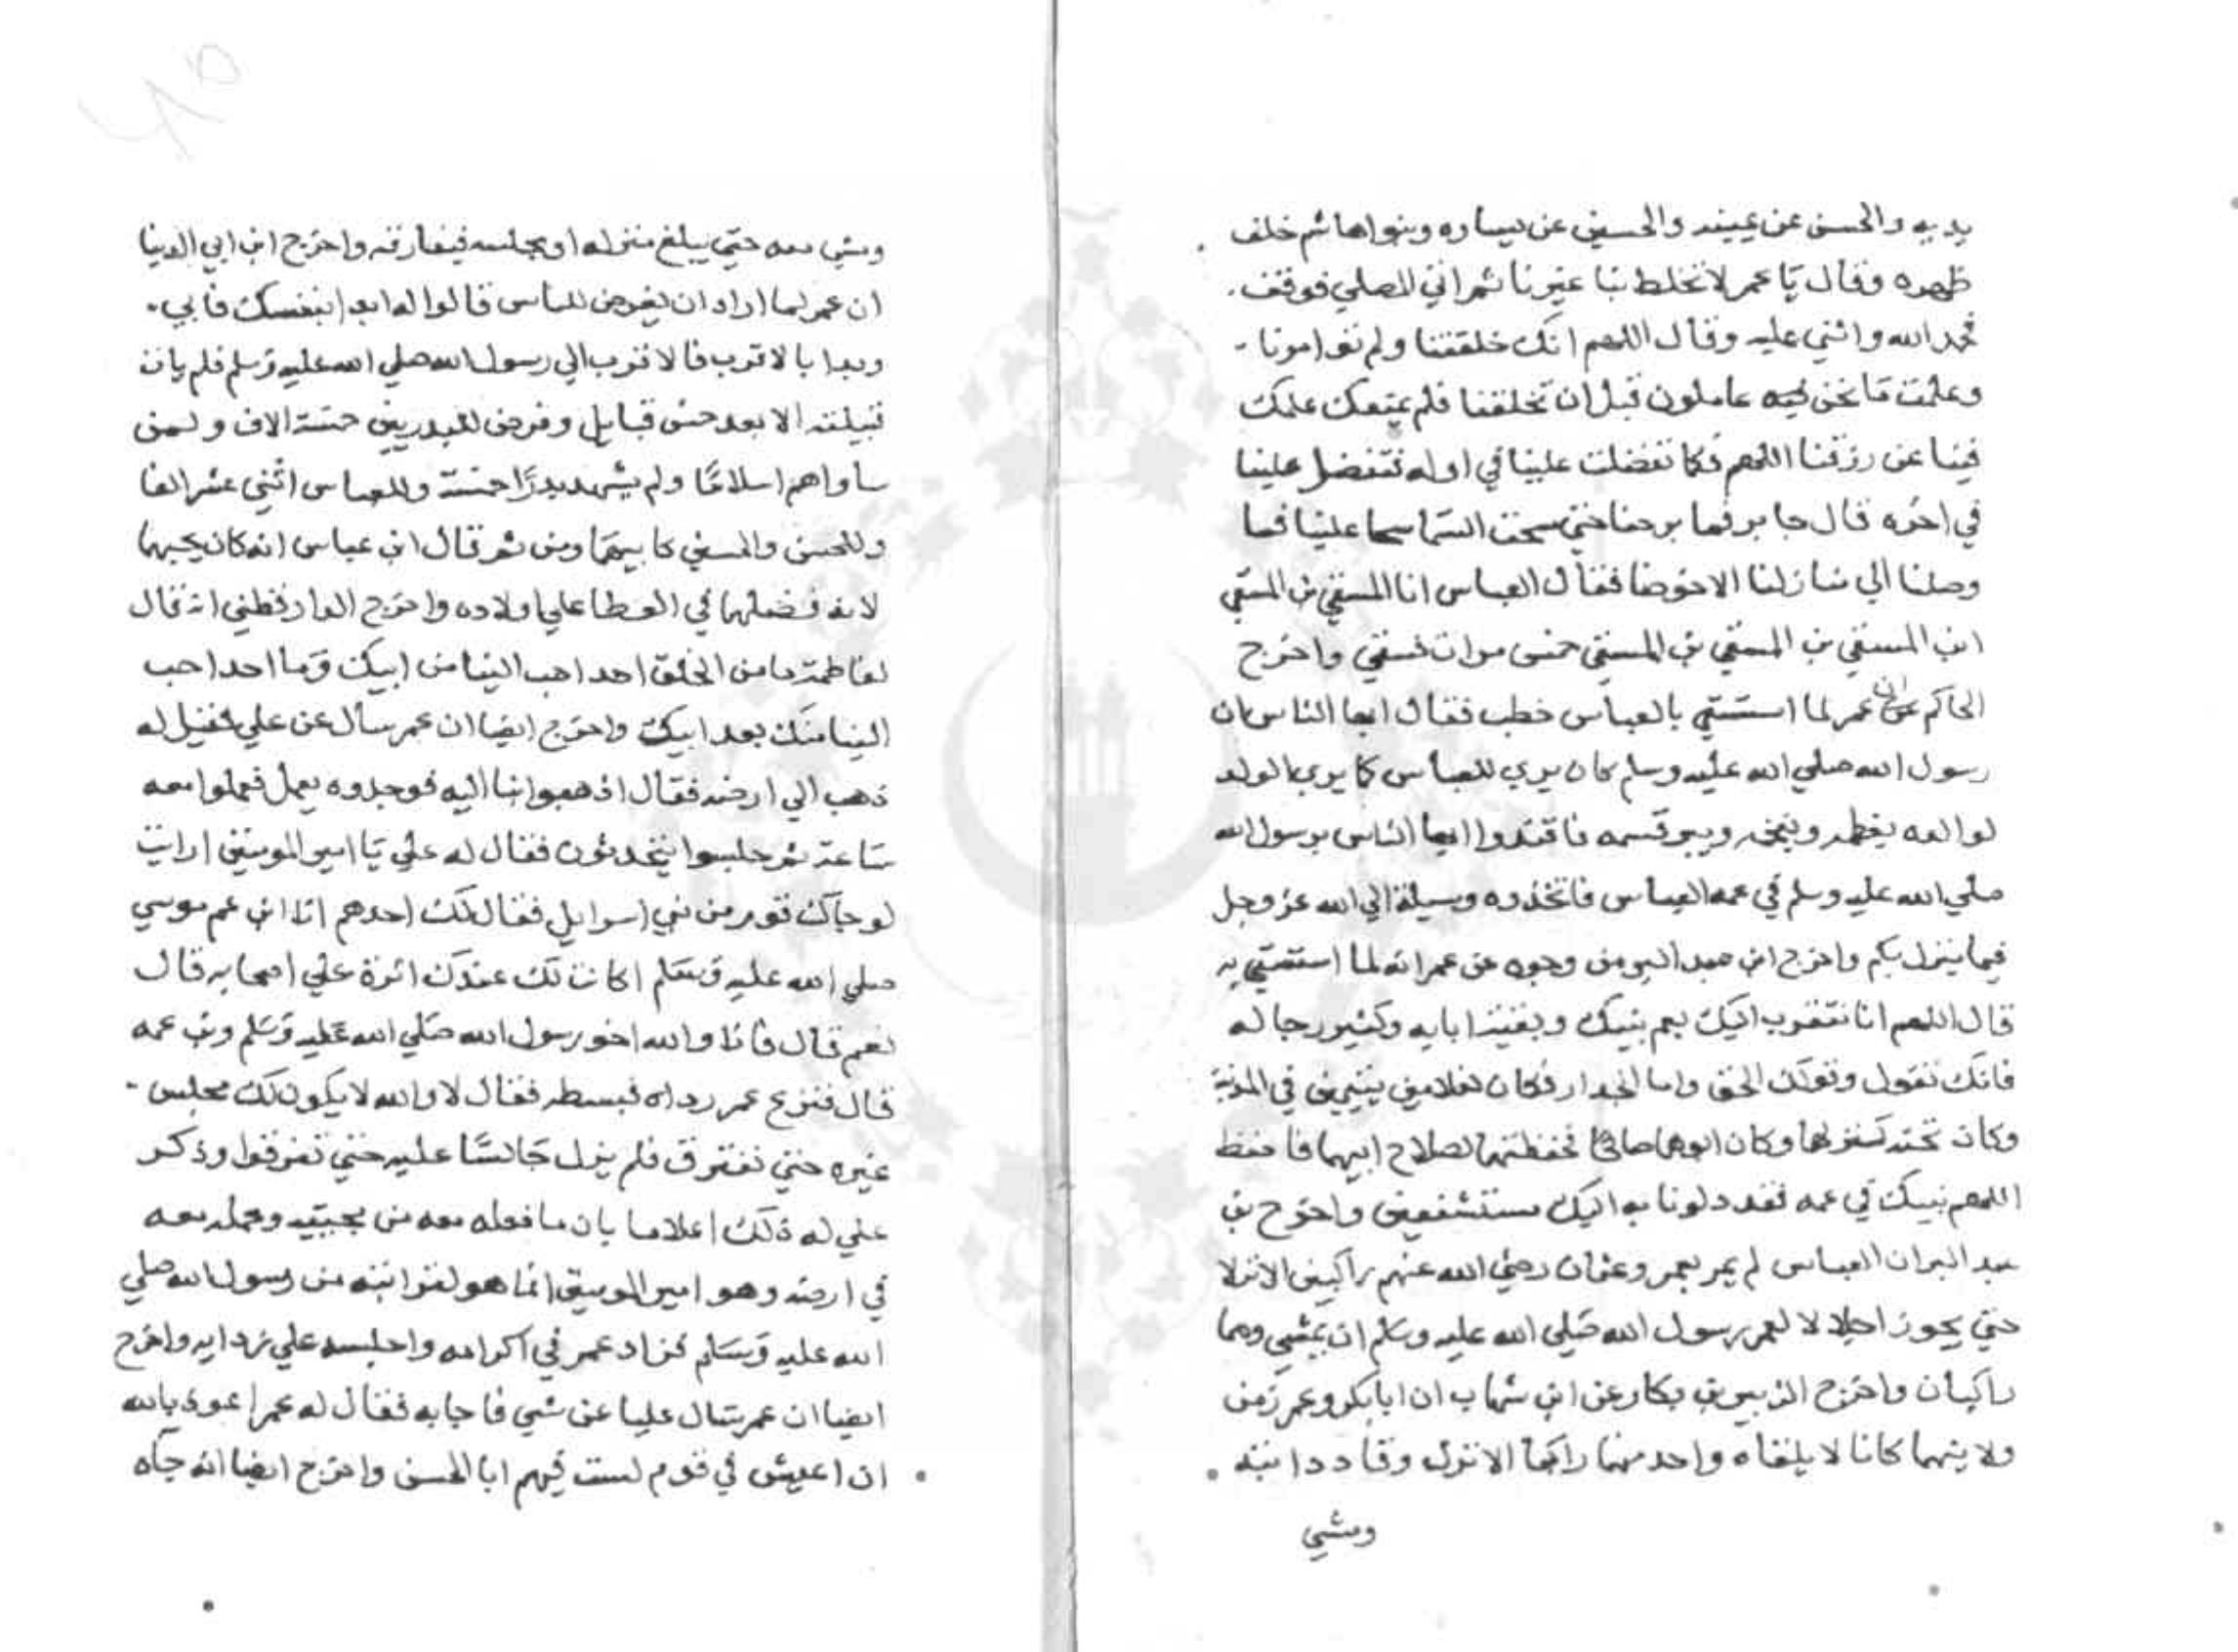 يديه والحسن عن يمينه والحسين عن يساره وبنواهاشم خلف
ظهره وقال يا عمر لا تخلط بنا غيرنا ثم اتي المصلي فوقف
فحمد الله واثني عليه وقال اللهم انك خلقتنا ولم توامرنا
وعلمت ما نحن فيه عاملون قبل ان تخلقنا فلم يمنعك علمك
فينا عن رزقنا اللهم فكما تفضلت علينا في اوله فتفضل علينا
في اخره قال جابر فما برحنا حتي سحت السما سحا علينا فما
وصلنا الي منازلنا الا خوضا فقال العباس انا المسقي بن المسقي
ابن المسقي بن المسقي بن المسقي خمس مرات فسقي واخرج
الحاكم ان عمر لما استسقي بالعباس خطب فقال ايها الناس ان
رسول الله صلي الله عليه وسلم كان يري للعباس كما يري الولد
لوالده يعظمه ويفخمه ويبر قسمه فاقتدوا ايها الناس برسول الله
صلي الله عليه وسلم في عمه العباس فاتخذوه وسيلة الي الله عز وجل
فيما ينزل بكم واخرج ابن عبد البر من وجوه عن عمر انه لما استسقي به
قال اللهم انا نتقرب اليك بعم نبيك وبقية ابايه وكثير رجاله
فانك تقول وقولك الحق واما الجدار فكان لغلامين يتيمين في المدينة
وكان تحته كنز لهما وكان ابوهما صالحا فحفظتهما لصلاح ابيهما فاحفظ
اللهم نبيك في عمه فقد دلونا به اليك مستشفعين واخرج بن
عبد البر ان العباس لم يمر بعمر وعثمان رضي الله عنهم راكبين الا نزلا
حتي يجوز اجلالا لعم رسول الله صلي الله عليه وسلم ان يمشي وهما
راكبان واخرج الزبير بن بكار عن ابن شهاب ان ابا بكر وعمر زمن
ولايتهما كانا لا يلقاه واحد منهما راكبا الا نزل وقاد دابته
ومشي
ومشي معه حتي يبلغ منزله او مجلسه فيفارقه واخرج ابن ابي الدنيا
ان عمر لما اراد ان يفرض للناس قالوا له ابدا بنفسك فابي
وبدا بالاقرب فالاقرب الي رسول الله صلي الله عليه وسلم فلم يات
قبيلته الا بعد خمس قبايل وفرض للبدريين خمسة الاف ولمن
ساواهم اسلاما ولم يشهد بدرا خمسة وللعباس اثني عشر الفا
وللحسن والحسين كابيهما ومن ثم قال ابن عباس انه كان يحبهما
لانه فضلهما في العطا علي اولاده واخرج الدارقطني انه قال
لفاطمة ما من الخلق احد احب الينا من ابيك وما احد احب
الينا منك بعد ابيك واخرج ايضا ان عمر سأل عن علي فقيل له
ذهب الي ارضه فقال اذهبوا بنا اليه فوجدوه يعمل فعملوا معه
ساعة ثم جلسوا يتحدثون فقال له علي يا امير المومنين ارايت
لو جاك قوم من بني اسرايل فقال لك احدهم انا ابن عم موسي
صلي الله عليه وسلم اكانت له عندك اثرة علي اصحابه قال
نعم قال فانا والله اخو رسول الله صلي الله عليه وسلم وبن عمه
قال فنزع عمر رداه فبسطه فقال لا والله لا يكون لك مجلس
غيره حتي نفترق فلم يزل جالسا عليه حتي تفرقوا وذكر
علي له ذلك اعلاما بان ما فعله معه من مجييه وعمله معه
في ارضه وهو امير المومنين انما هو لقرابته من رسول الله صلي
الله عليه وسلم فزاد عمر في اكرامه واجلسه علي ردايه واخرج
ايضا ان عمر سال عليا عن شي فاجابه فقال له عمر اعوذ بالله
ان اعيش في قوم لست فيهم ابا الحسن واخرج ايضا انه جاه